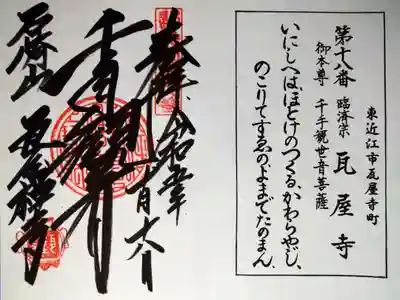 東近江市瓦屋寺町
第十八番 臨済宗 瓦屋寺
御本尊 千手観世音菩薩
いにしへは、ほとけのつくる、かわらやじ、
のこりてすゑの、よまでたのまん、
奉拝 令和
千手観音
瓦屋禅寺